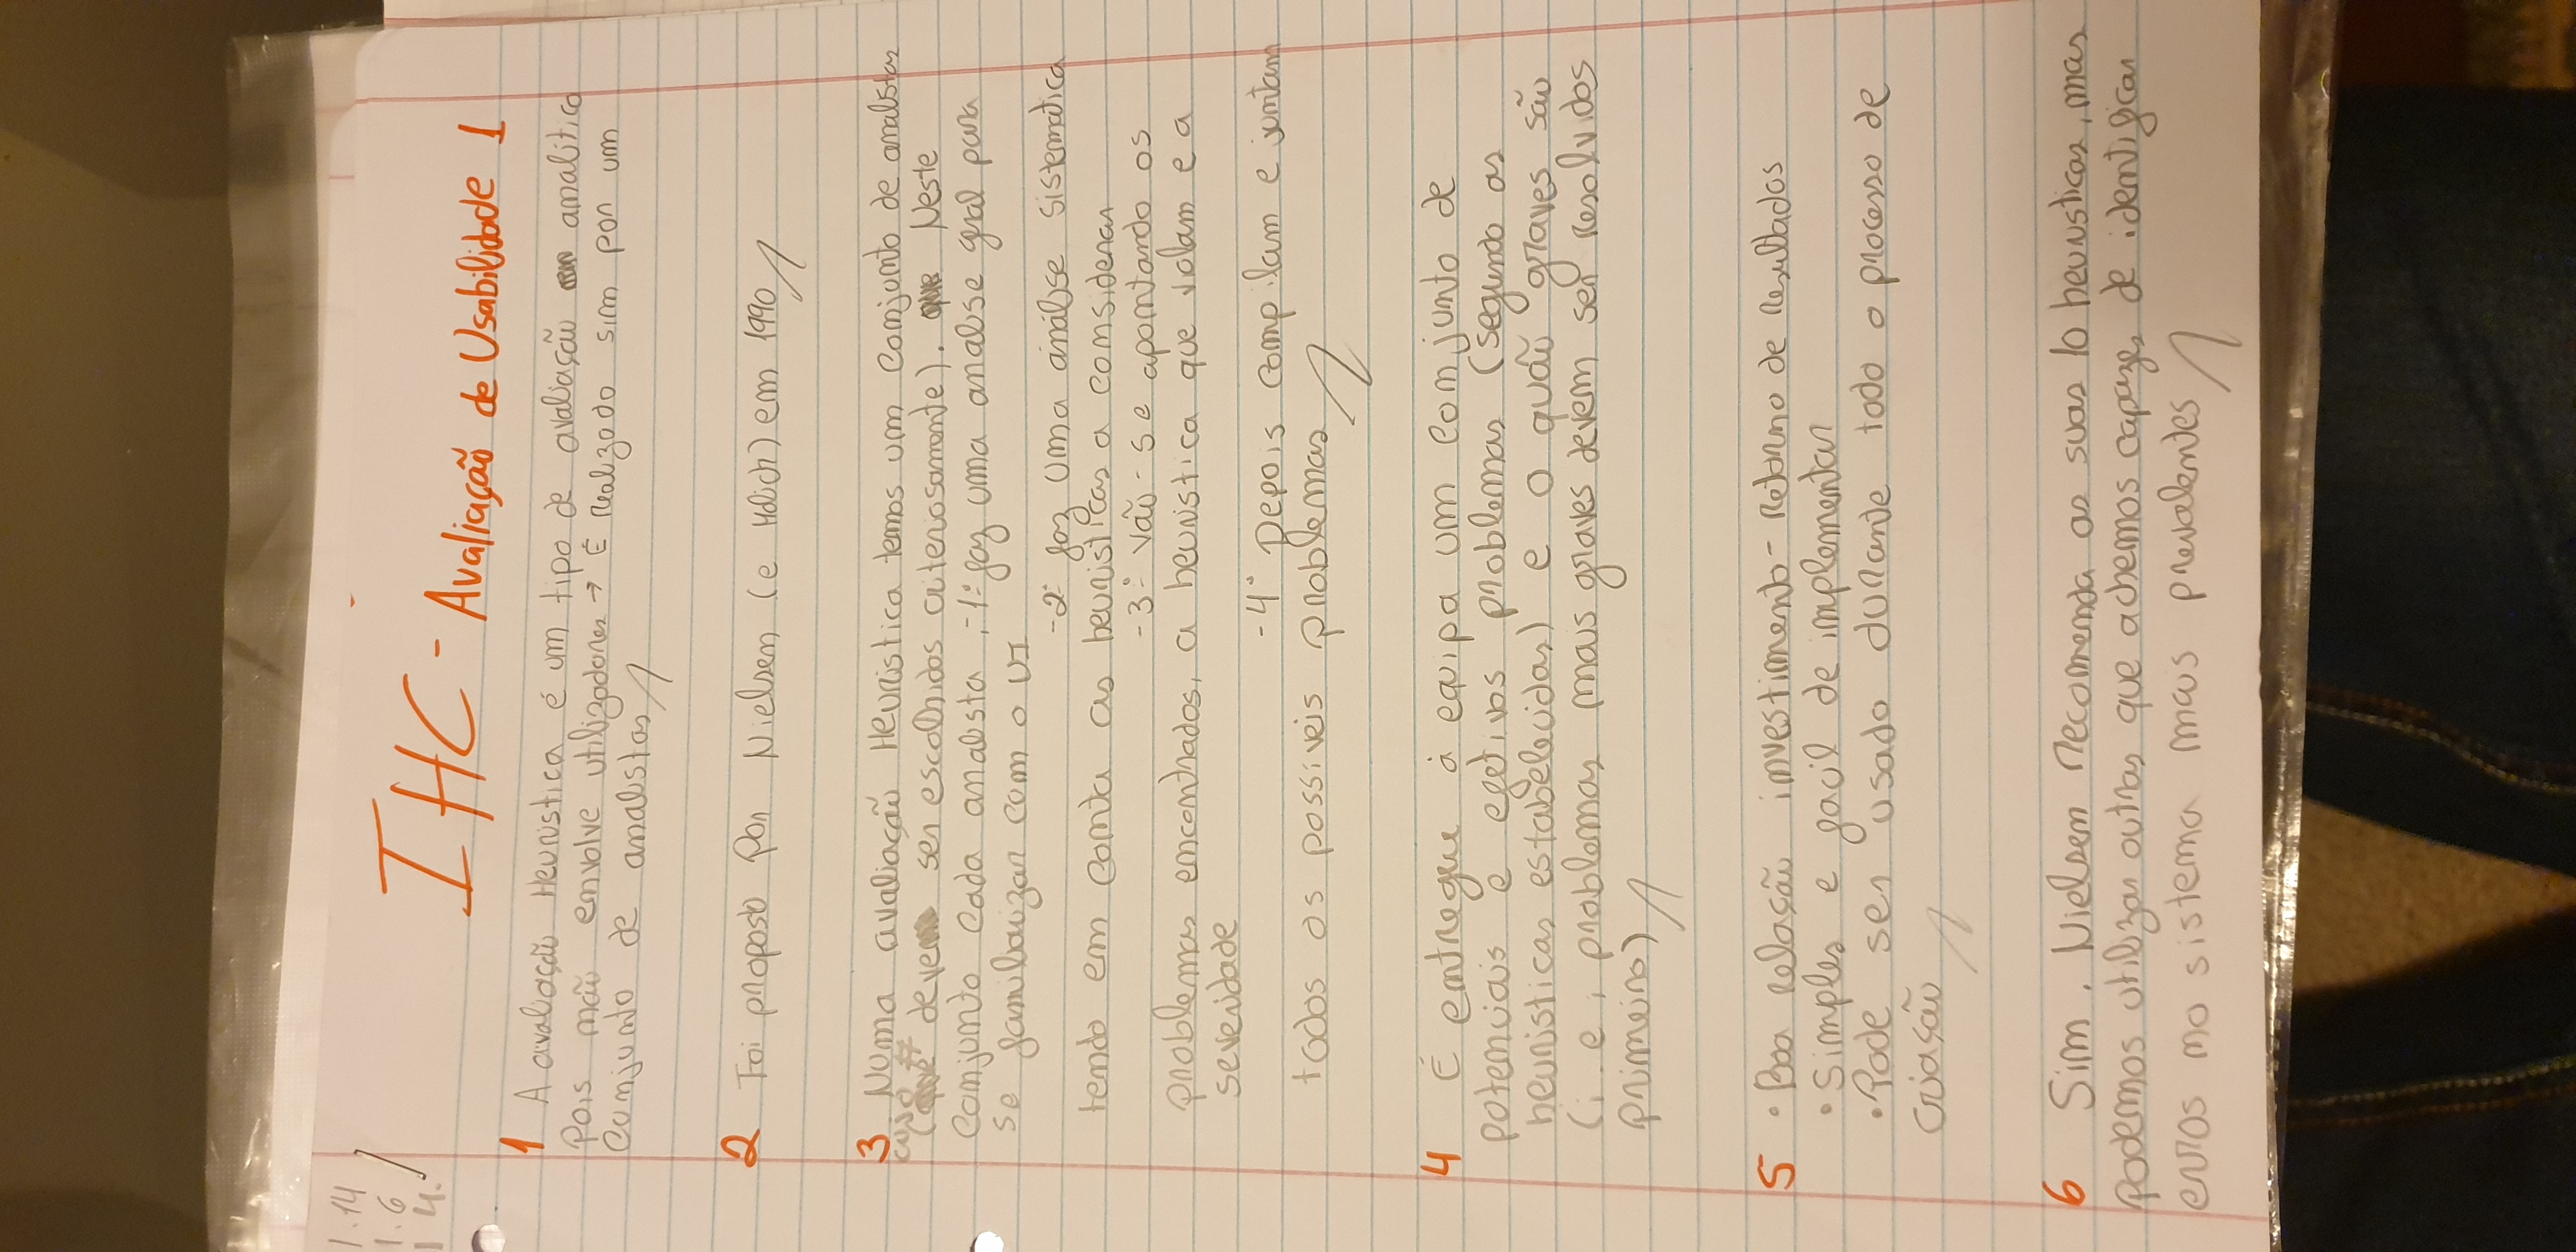 1.14
1.6
1 4.
IHC - Avaliação de Usabilidade 1
1 A avaliação Heuristica é um tipo de avaliação analitica
pois não envolve utilizadores → É realizado sim por um
conjunto de analistas
2 Foi proposto por Nielsen (e Molich) em 1990
3. Numa avaliação Heuristica temos um conjunto de analistas
( deve ser escolhidos criteriosamente). Neste
conjunto cada analista ; -1º faz uma analise geral para
se familiarizar com o UI
-2º faz uma análise sistematica
tendo em conta as heuristicas a considerar
-3º vão-se apontando os
problemas encontrados, a heuristica que violam e a
severidade
-4º Depois compilam e juntam
todos os possiveis problemas
4 É entregue á equipa um conjunto de
potenciais e efetivos problemas (segundo as
heuristicas estabelecidas) e o quão graves são
(i.e, problemas mais graves devem ser resolvidos
primeiro)
5 • Boa relação investimento - retorno de resultados
• Simples e facil de implementar
• Pode ser usado durante todo o processo de
criação
6 Sim. Nielsen recomenda as suas 10 heuristicas, mas
podemos utilizar outras que achemos capazes de identificar
erros no sistema mais prevalentes